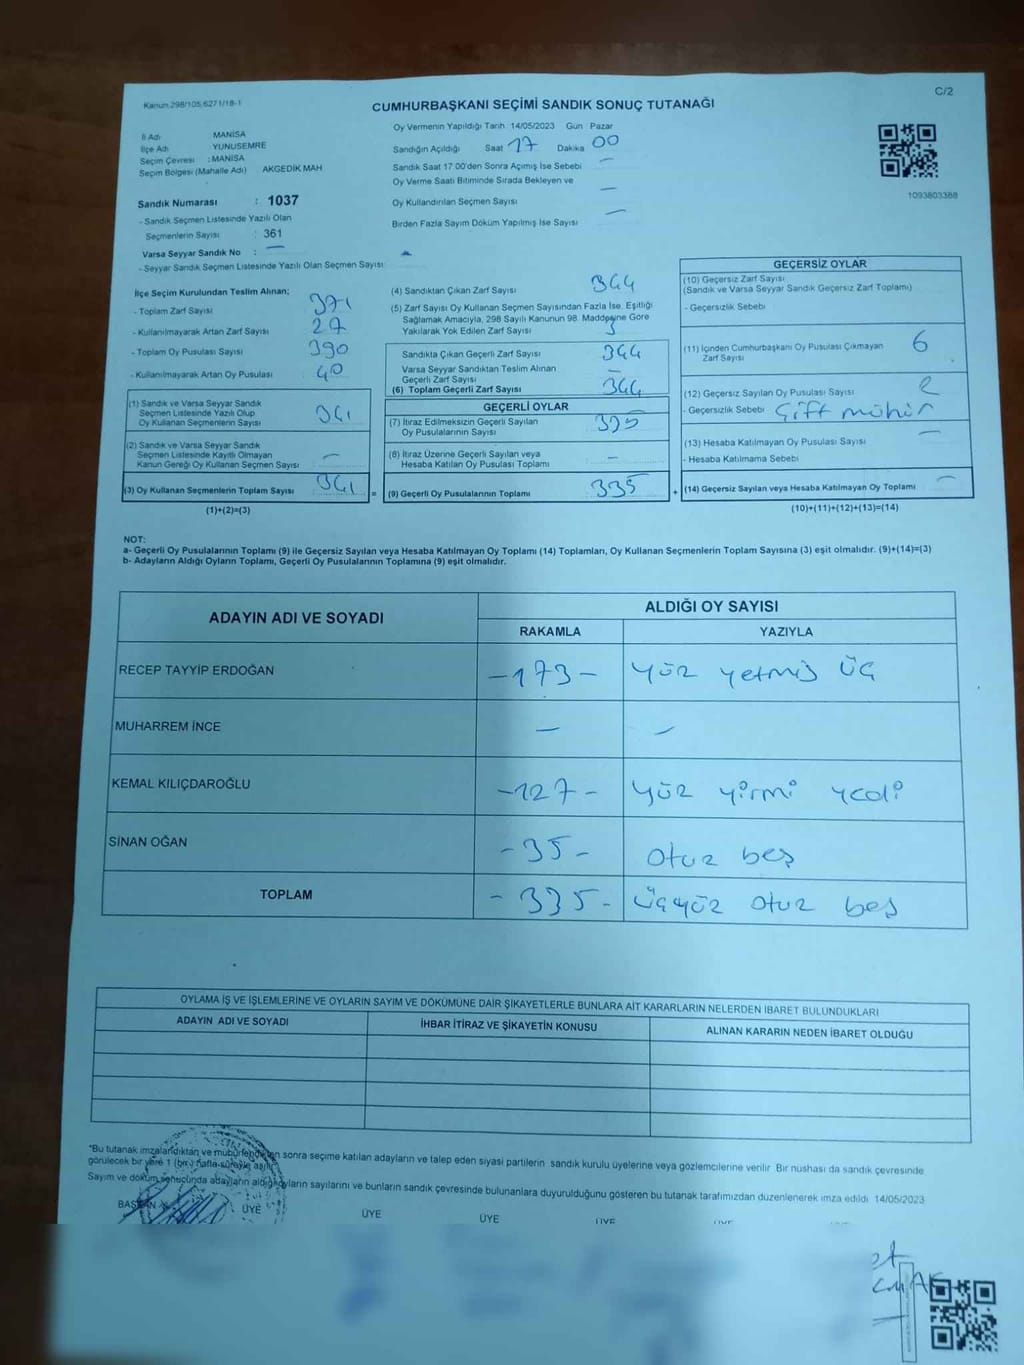 Kanun 298/105,6271/18-1
C/2
CUMHURBAŞKANI SEÇİMİ SANDIK SONUÇ TUTANAĞI
İl Adı MANİSA
İlçe Adı YUNUSEMRE
Seçim Çevresi : MANİSA
Seçim Bölgesi (Mahalle Adı) AKGEDİK MAH
Sandık Numarası : 1037
- Sandık Seçmen Listesinde Yazılı Olan
Seçmenlerin Sayısı : 361
Varsa Seyyar Sandık No : —
- Seyyar Sandık Seçmen Listesinde Yazılı Olan Seçmen Sayısı
Oy Vermenin Yapıldığı Tarih 14/05/2023 Gün Pazar
Sandığın Açıldığı Saat 17 Dakika 00
Sandık Saat 17.00'den Sonra Açılmış İse Sebebi —
Oy Verme Saati Bitiminde Sırada Bekleyen ve
Oy Kullandırılan Seçmen Sayısı —
Birden Fazla Sayım Döküm Yapılmış İse Sayısı —
1093803388
İlçe Seçim Kurulundan Teslim Alınan;
- Toplam Zarf Sayısı 371
- Kullanılmayarak Artan Zarf Sayısı 27
- Toplam Oy Pusulası Sayısı 390
- Kullanılmayarak Artan Oy Pusulası 40
(1) Sandık ve Varsa Seyyar Sandık
Seçmen Listesinde Yazılı Olup
Oy Kullanan Seçmenlerin Sayısı 341
(2) Sandık ve Varsa Seyyar Sandık
Seçmen Listesinde Kayıtlı Olmayan
Kanun Gereği Oy Kullanan Seçmen Sayısı —
(3) Oy Kullanan Seçmenlerin Toplam Sayısı 341
(1)+(2)=(3)
(4) Sandıktan Çıkan Zarf Sayısı 344
(5) Zarf Sayısı Oy Kullanan Seçmen Sayısından Fazla İse, Eşitliği
Sağlamak Amacıyla, 298 Sayılı Kanunun 98. Maddesine Göre
Yakılarak Yok Edilen Zarf Sayısı 3
Sandıkta Çıkan Geçerli Zarf Sayısı 344
Varsa Seyyar Sandıktan Teslim Alınan
Geçerli Zarf Sayısı
(6) Toplam Geçerli Zarf Sayısı 344
GEÇERLİ OYLAR
(7) İtiraz Edilmeksizin Geçerli Sayılan
Oy Pusulalarının Sayısı 335
(8) İtiraz Üzerine Geçerli Sayılan veya
Hesaba Katılan Oy Pusulası Toplamı —
= (9) Geçerli Oy Pusulalarının Toplamı 335 +
GEÇERSİZ OYLAR
(10) Geçersiz Zarf Sayısı
(Sandık ve Varsa Seyyar Sandık Geçersiz Zarf Toplamı)
- Geçersizlik Sebebi
(11) İçinden Cumhurbaşkanı Oy Pusulası Çıkmayan
Zarf Sayısı 6
(12) Geçersiz Sayılan Oy Pusulası Sayısı
- Geçersizlik Sebebi Çift mühür
(13) Hesaba Katılmayan Oy Pusulası Sayısı —
- Hesaba Katılmama Sebebi
(14) Geçersiz Sayılan veya Hesaba Katılmayan Oy Toplamı —
(10)+(11)+(12)+(13)=(14)
NOT:
a- Geçerli Oy Pusulalarının Toplamı (9) ile Geçersiz Sayılan veya Hesaba Katılmayan Oy Toplamı (14) Toplamları, Oy Kullanan Seçmenlerin Toplam Sayısına (3) eşit olmalıdır. (9)+(14)=(3)
b- Adayların Aldığı Oyların Toplamı, Geçerli Oy Pusulalarının Toplamına (9) eşit olmalıdır.
ADAYIN ADI VE SOYADI ALDIĞI OY SAYISI
RAKAMLA YAZIYLA
RECEP TAYYİP ERDOĞAN -173- yüz yetmiş üç
MUHARREM İNCE — —
KEMAL KILIÇDAROĞLU -127- yüz yirmi yedi
SİNAN OĞAN -35- otuz beş
TOPLAM -335- üçyüz otuz beş
OYLAMA İŞ VE İŞLEMLERİNE VE OYLARIN SAYIM VE DÖKÜMÜNE DAİR ŞİKAYETLERLE BUNLARA AİT KARARLARIN NELERDEN İBARET BULUNDUKLARI
ADAYIN ADI VE SOYADI İHBAR İTİRAZ VE ŞİKAYETİN KONUSU ALINAN KARARIN NEDEN İBARET OLDUĞU
*Bu tutanak imzalandıktan ve mühürlendikten sonra seçime katılan adayların ve talep eden siyasi partilerin sandık kurulu üyelerine veya gözlemcilerine verilir. Bir nüshası da sandık çevresinde
görülecek bir yere 1 (bir) hafta süreyle asılır.
Sayım ve döküm sonucunda adayların aldığı oyların sayılarını ve bunların sandık çevresinde bulunanlara duyurulduğunu gösteren bu tutanak tarafımızdan düzenlenerek imza edildi 14/05/2023
BAŞKAN ÜYE ÜYE ÜYE ÜYE